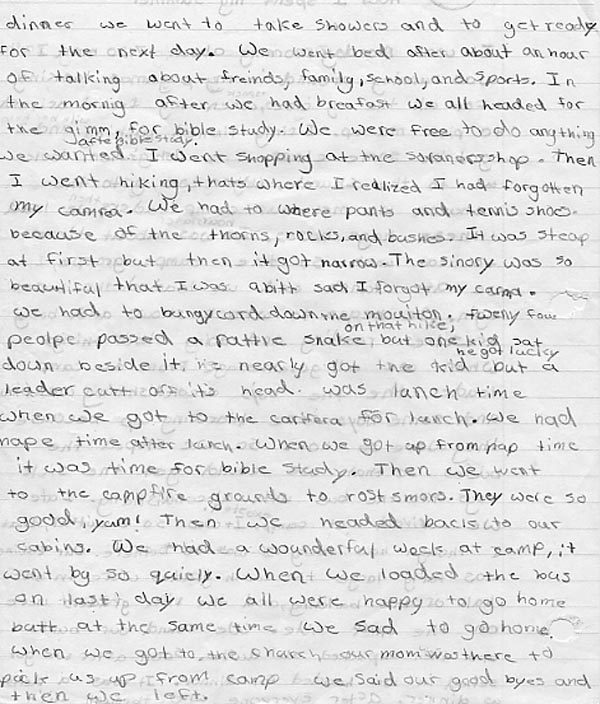 dinner we went to take showers and to get ready
for the next day. We went bed after about an hour
of talking about freinds, family, school, and sports. In
the mornig after we had breafast we all headed for
the gimm, for bible study. We were free to do anything
after bible study.
we wanted. I went shopping at the shop. Then
I went hiking, thats where I realized I had forgotten
my camra. We had to where pants and tennis shoes
because of the thorns, rocks, and bushes. It was steap
at first but then it got narrow. The sinory was so
beautiful that I was a bitt sad I forgot my camra.
we had to bungycord down the moulton. twenty four
on that hike,
peolpe passed a rattle snake, but one kid sat
he got lucky
down beside it, it nearly got the kid but a
leader cutt off it's head. was lanch time
when we got to the for lunch. We had
nape time after lunch. When we got up from nap time
it was time for bible study. Then we went
to the campfire grounds to rost smors. They were so
good, yum! Then we headed back to our
cabins. We had a wounderful week at camp, it
went by so quicly. When we loaded the bus
on last day we all were happy to go home
butt at the same time we sad to go home.
when we got to the church our mom was there to
pick us up from camp we said our good byes and
then we left.